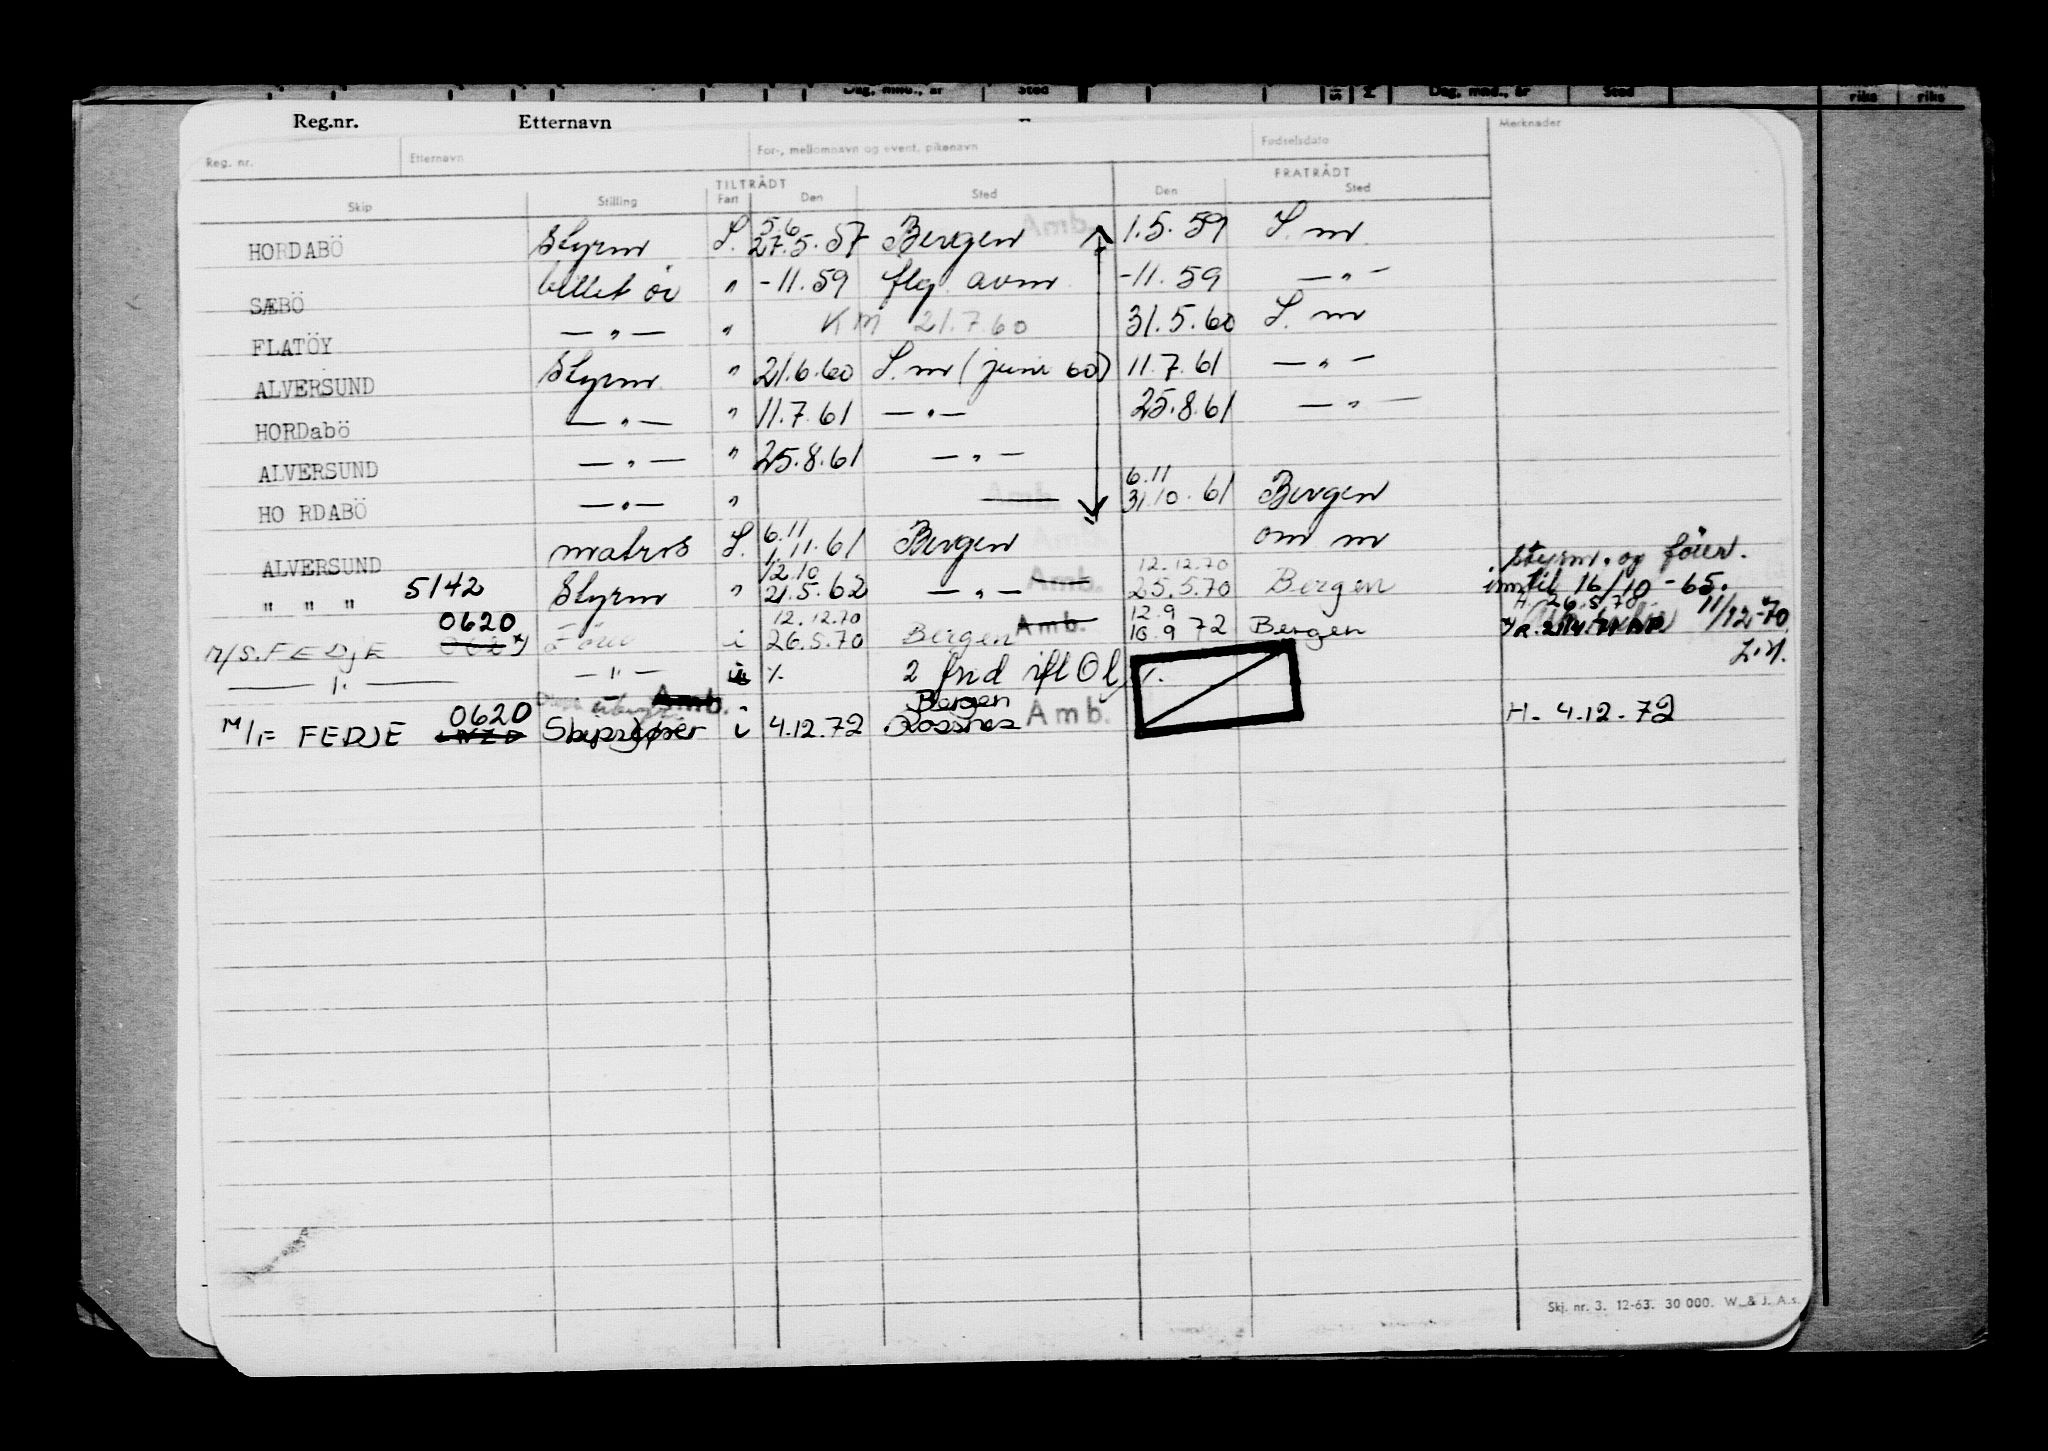 Dag, mnd., år Sted Dag, mnd., år Sted riks riks
Reg.nr. Etternavn
Reg. nr. Etternavn For-, mellomnavn og event. pikenavn Fødselsdato Merknader
TILTRÅDT FRATRÅDT
Skip Stilling Fart Den Sted Den Sted
5.6
HORDABÖ Styrm S. 27.5.57 Bergen Amb. 1.5.59 S. m
SÆBÖ billet ør " -11.59 flg. avm -11.59 — " —
FLATÖY — " — " KM 21.7.60 31.5.60 S. m
ALVERSUND Styrm " 21.6.60 S. m (juni 60) 11.7.61 — " —
HORDabö — " — " 11.7.61 — " — 25.8.61 — " —
ALVERSUND — " — " 25.8.61 — " —
6.11
HO RDABÖ — " — " Amb. 31.10.61 Bergen
6.11
ALVERSUND matros S. 1.11.61 Bergen om m
styrm. og förer.
12.10 12.12.70
" " " 5142 Styrm " 21.5.62 — " — Amb. 25.5.70 Bergen inntil 16/10-65.
H. 26.5.70 11/12-70
0620 12.12.70 12.9
M/S. FEDJE i 26.5.70 Bergen Amb. 16.9 72 Bergen
— " — — " — i % 2 fnd ifl Ol %.
Amb. Bergen
0620
M/F FEDJE Skipsfører i 4.12.72 Amb. H. 4.12.72
Skj. nr. 3. 12-63. 30 000. W. & J. A.s.